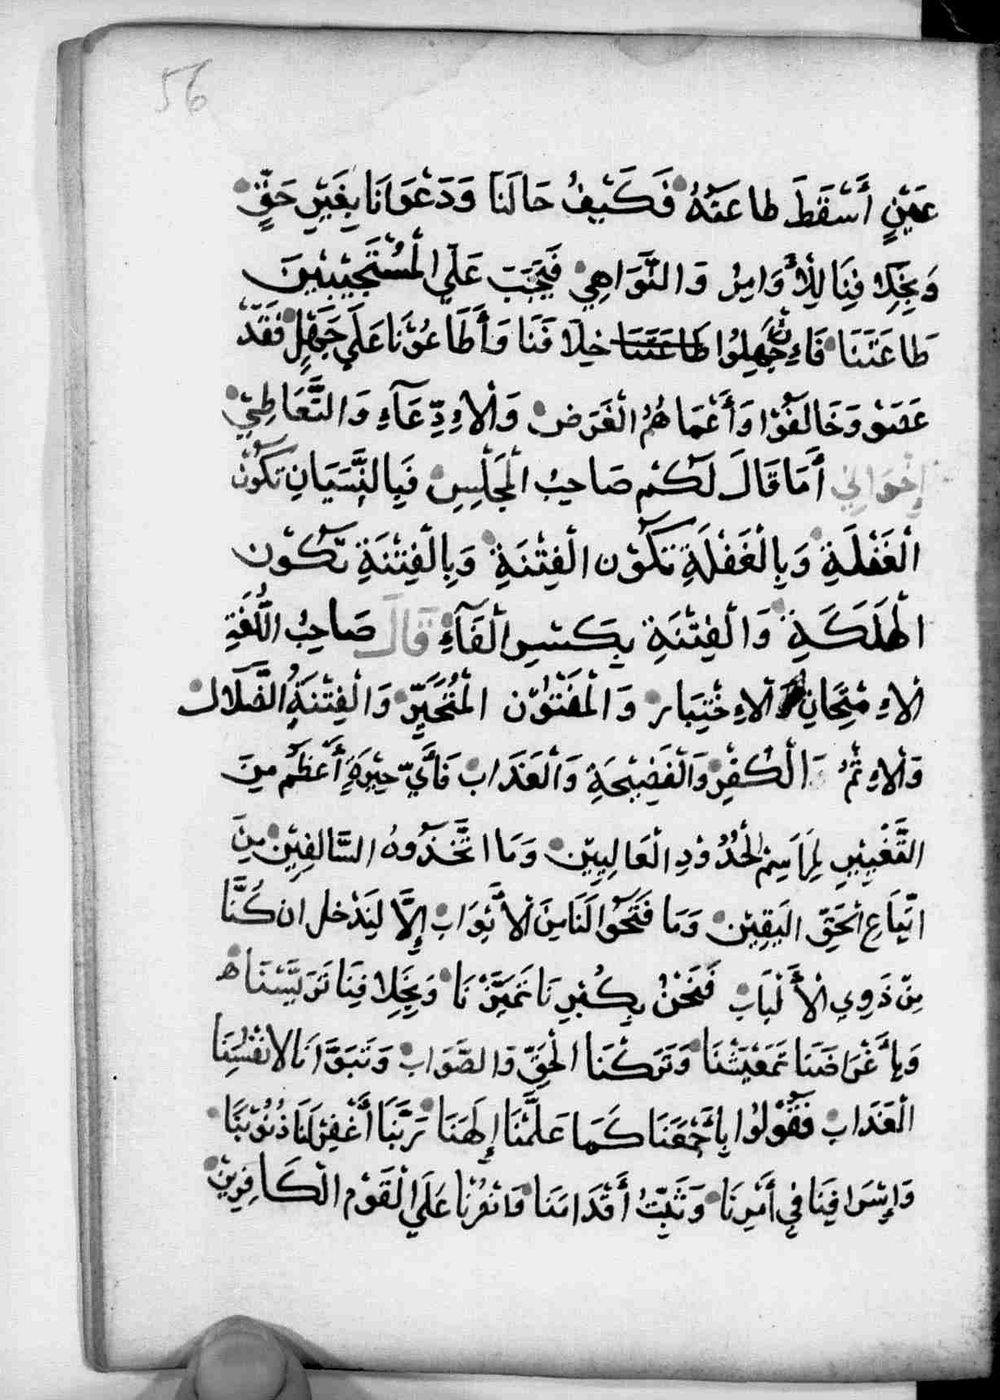 56
عَيْنٍ أَسْقَطَ طاعَتَهُ فَكَيْفُ حَالَنَا وَدَعْوَانَا بِغَيْرِ حَقٍّ
وَبِخِلَافِنَا لِلْأَوَامِرْ وَالنَّوَاهِيْ فَيَجَبَ عَلَي الْمُسْتَجِيْبِيْنَ
طَاعَتَنَا فَاءِنْ جَهِلُوا طَاعَتَنَا خِلَافَنَا وَأَطَاعُوْنَا عَلَي جَهْلٍ فَقَدْ
عَصَوْ وَخَالَفُوْا وَأَعْمَاهُمُ الْغَرَضْ وَالْاءِدِّعَآءِ وَالتَّعَاطِيْ
إِخْوَانِي أَمَا قَالَ لَكُمْ صَاحِبُ الْمَجْلِسِ فَبِالنِّسْيَانِ تَكُوْنْ
الْغَفْلَةِ وَبِالْغَفْلَةِ تَكُوْن الْفِتْنَةِ وَبِالْفِتْنَةِ تَكُوْن
الْهَلَكَةِ وَالْفِتْنَةِ بِكَسْرِ الْفَآءِ قَالَ صَاحِبُ اللُّغَةِ
الْاءِمْتِحَانِ الْاءِخْتِبَار وَالْمَفْتُوْن الْمُتُحَيِّرْ وَالْفِتْنَةُ الضَّلَالْ
وَالْاءِثْمُ وَالْكُفْرِ وَالْفَضِيْحَةِ وَالْعَذَابْ فَأَيّ حِيْرَةٍ أَعْظَمْ مِنَ
التَّغْيِيْرِ لِمَرَاسِمْ الْحُدُوْدِ الْعَالِيِيْن وَمَا اتَّخَذُوهُ السَّالِفِيْنَ مِنَ
اتِّبَاعِ الْحَقِّ اليَقِيْنْ وَمَا فَتَحُوا لَنَا مِنَ الْأَبْوَابْ إِلَّا لِيَدْخل ان كُنَّا
مِنْ ذَوِي الْأَلْبَابْ فَنَحْنُ بِكُبْرِنَا تَمَيَّزْنَا وَبِخِلَافِنَا تَرَيَّسْنَاهْ
وَبِأَغْرَاضَنَا تَمَعْيَشْنَا وَتَرَكْنَا الْحَقِّ وَالصَّوَابْ وَنَتبَوَّا نَا لِانْفُسِنَا
الْعَذَابْ فَقُوْلُوا بِأَجْمَعَنَا كَمَا عَلَّمْنَا إِلَهَنَا رَبَّنَا أَغْفِرْ لَنَا ذُنُوْبَنَا
وَاِسْرَافِنَا فِي أَمْرِنَا وَثَبِّتْ أَقْدَامَنَا وَانْصُرْنَا عَلَي الْقَوْمِ الْكَافِرِيْنْ